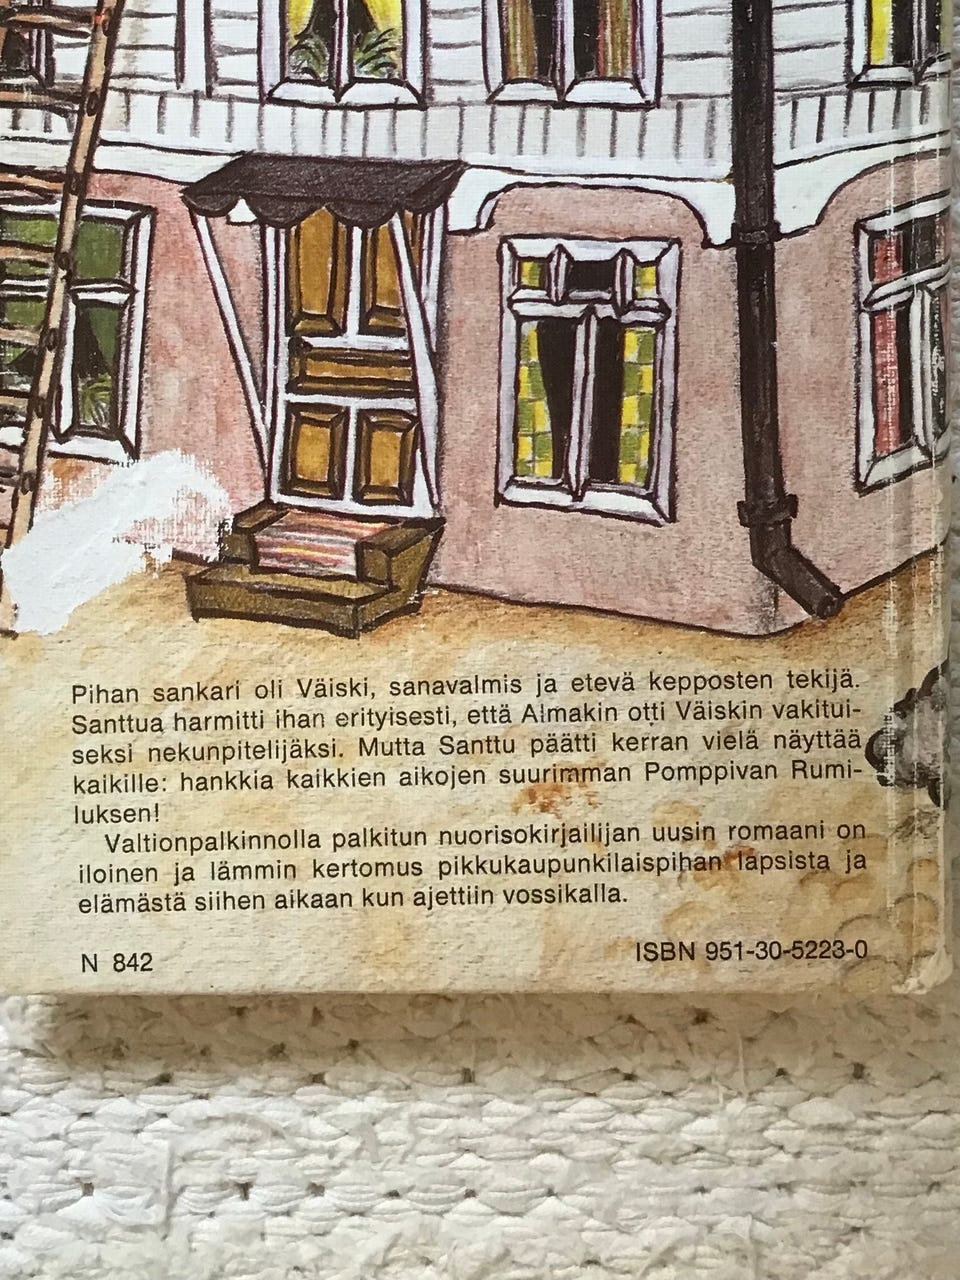 Pihan sankari oli Väiski, sanavalmis ja etevä kepposten tekijä.
Santtua harmitti ihan erityisesti, että Almakin otti Väiskin vakitui-
seksi nekunpitelijäksi. Mutta Santtu päätti kerran vielä näyttää
kaikille: hankkia kaikkien aikojen suurimman Pomppivan Rumi-
luksen!
Valtionpalkinnolla palkitun nuorisokirjailijan uusin romaani on
iloinen ja lämmin kertomus pikkukaupunkilaispihan lapsista ja
elämästä siihen aikaan kun ajettiin vossikalla.
N 842
ISBN 951-30-5223-0